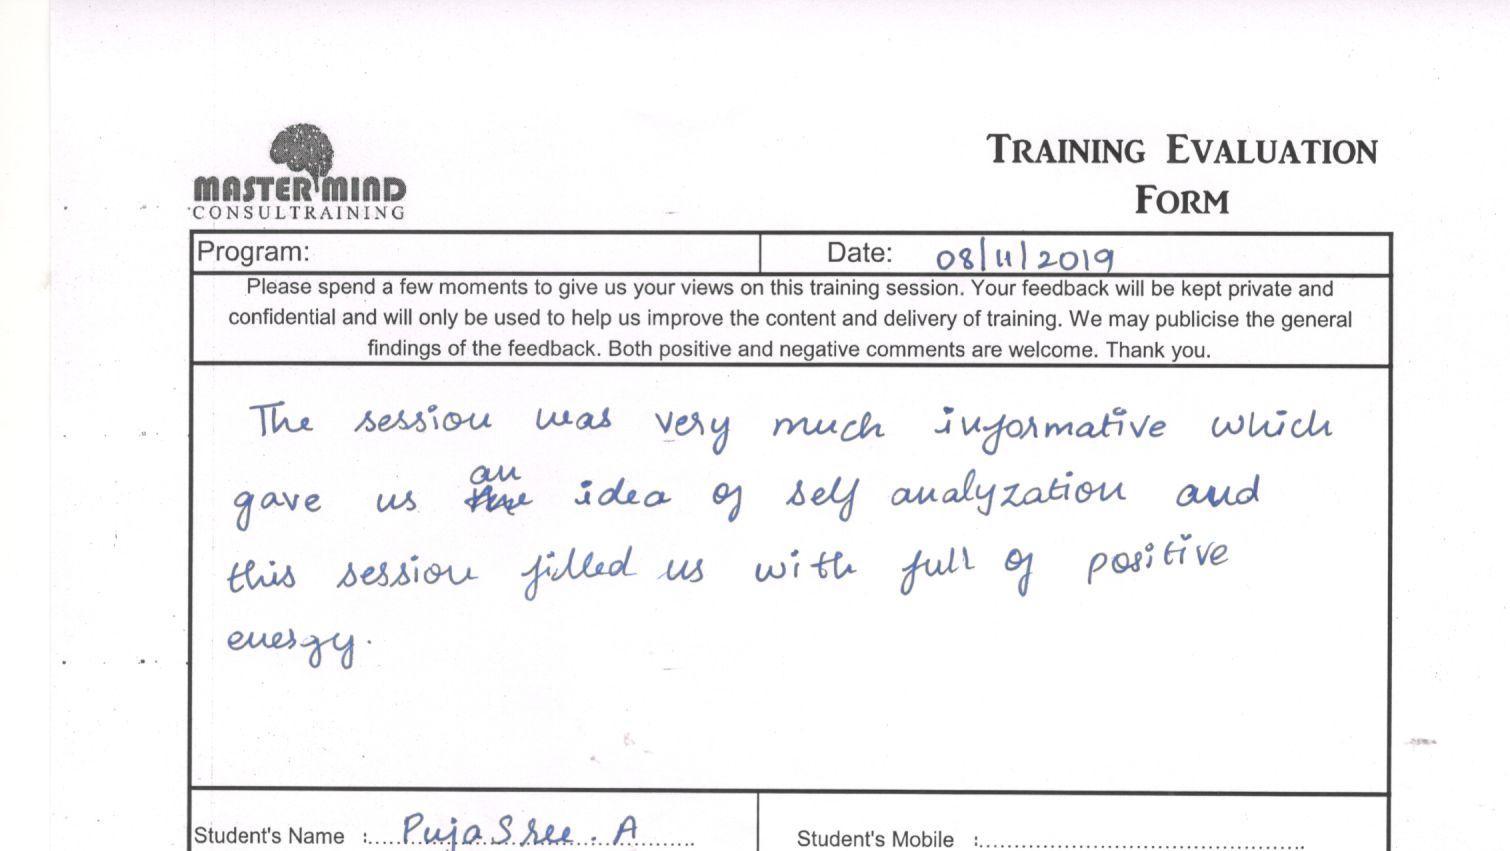 MASTER MIND
CONSULTRAINING
TRAINING EVALUATION
FORM
Program:
Date: 08/11/2019
Please spend a few moments to give us your views on this training session. Your feedback will be kept private and
confidential and will only be used to help us improve the content and delivery of training. We may publicise the general
findings of the feedback. Both positive and negative comments are welcome. Thank you.
The session was very much informative which
gave us an idea of self analyzation and
this session filled us with full of positive
energy.
Student's Name :....PujaSree.A.........
Student's Mobile :......................................................